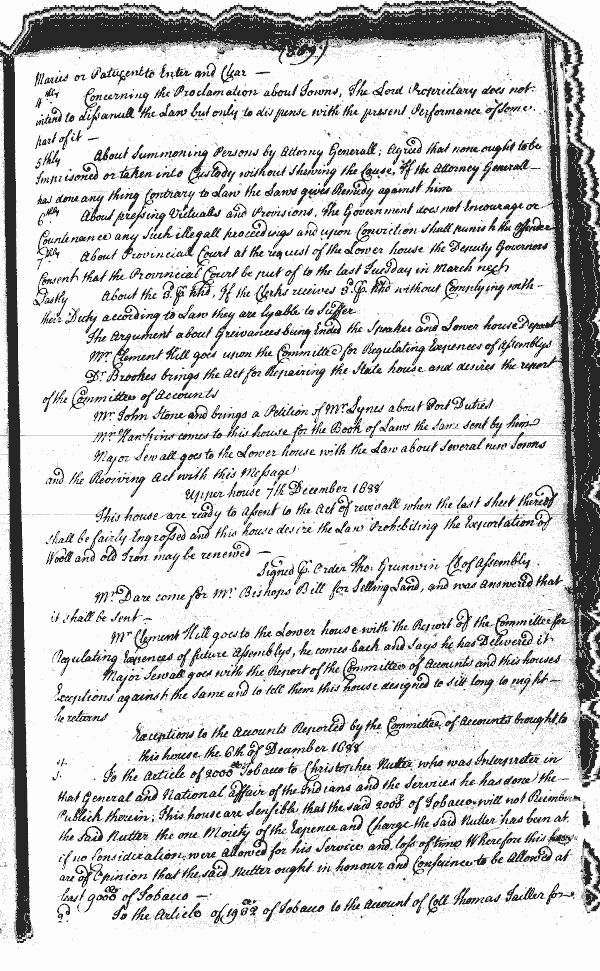 (809)
Maries or Patuxent to Enter and Clear —
4thly Concerning the Proclamation about Towns, The Lord Proprietary does not
intend to dissanull the Law but only to dispense with the present Performance of some
part of it —
5thly About Summoning Persons by Attorny Generall; Agreed that none ought to be
Imprisoned or taken into Custody without Shewing the Cause, If the Attorney Generall —
has done any thing Contrary to Law the Laws gives Remidy against him
6thly About pressing Victualls and Provisions, The Government does not Encourage or
Countenance any Such illegall proceedings and upon Conviction shall punish the offender
7thly About Provincial Court at the request of the Lower house the Deputy Governors
Consent that the Provincial Court be put of to the last Tuesday in March next
Lastly About the 3d p hhd, If the Clerks receives 3d p hhd without Complying with
their Duty according to Law they are lyable to Suffer
The Argument about Greivances being Ended the Speaker and Lower house Depart
Mr Clement Hill goes upon the Committee for Regulating Expences of Assemblys
Dr Brookes brings the Act for Repairing the State house and desires the report
of the Committee of Accounts
Mr John Stone and brings a Petition of Mr Lynes about Port Duties
Mr Hawkins comes to this house for the Book of Laws the same sent by him
Major Sewall goes to the Lower house with the Law about Several new Towns
and the Reviving Act with this Message
Upper house 7th December 1688
This house are ready to Assent to the Act of revivall when the last sheet thereof
shall be fairly Engrossed and this house desire the Law Prohibiting the Exportation of
Wooll and old Iron may be renewed —
Signed p Order Tho: Grunwin Cl of Assembly
Mr Dare come for Mr Bishops Bill for Selling Land, and was answered that
it shall be sent —
Mr Clement Hill goes to the Lower house with the Report of the Committee for
Regulating Expences of future Assemblys, he comes back and Says he has Delivered it
Major Sewall goes with the Report of the Committee of Accounts and this houses
Exceptions against the Same and to tell them this house designed to sitt long to night —
he returns
Exceptions to the Accounts Reported by the Committee of Accounts brought to
this house the 6th of December 1688
To the Article of 2000 Tobacco to Christopher Nutter who was Interpreter in
that General and National affair of the Indians and the Services he has done the —
Publick therein; This house are Sensible that the said 2000 of Tobacco will not Reimburse
the Said Nutter the one Moiety of the Expence and Charge the Said Nutter has been at
if no Consideration were allowed for his Service and loss of time Wherefore this house
are of Opinion that the said Nutter ought in honour and Conscience to be Allowed at
least 9000 of Tobacco —
2d To the Article of of Tobacco to the Account of Coll Thomas Tailler for